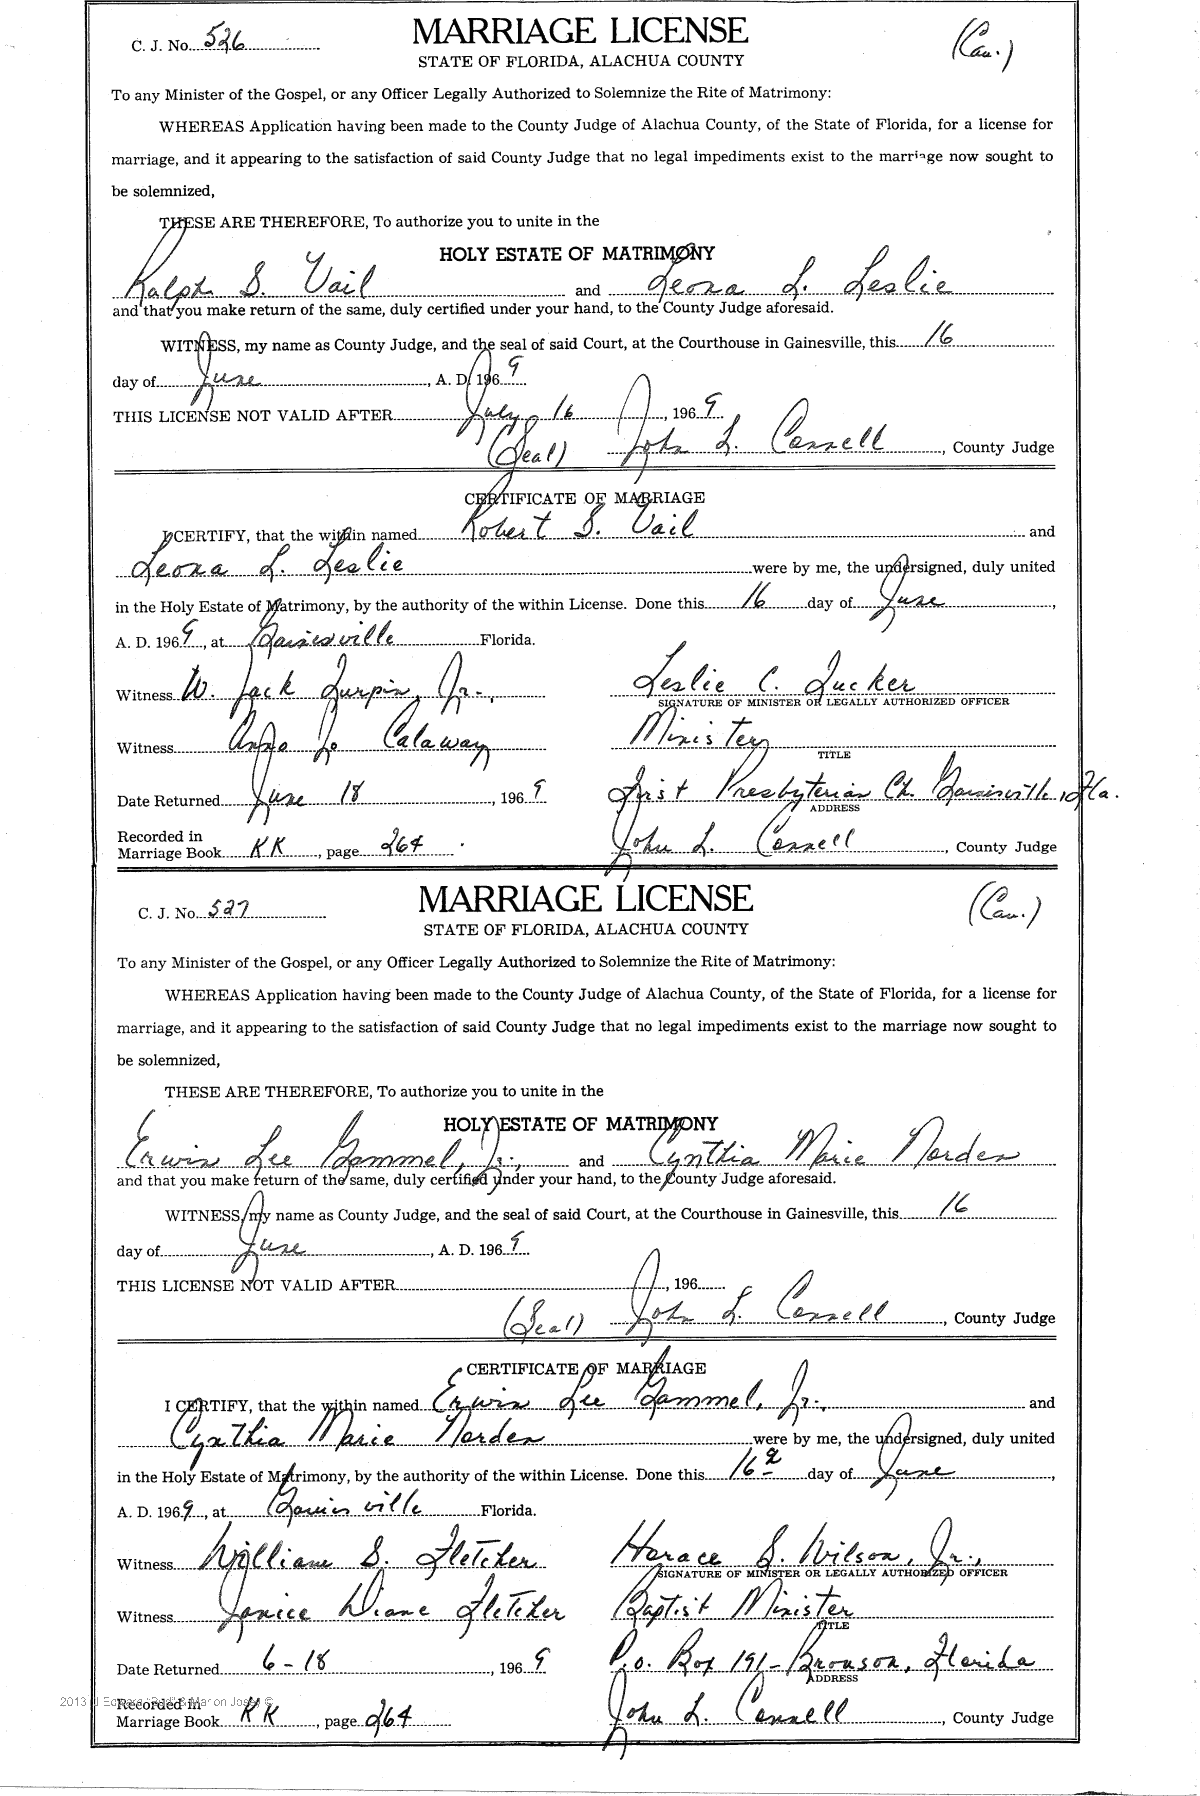 C. J. No. 526
MARRIAGE LICENSE
(Cau.)
STATE OF FLORIDA, ALACHUA COUNTY
To any Minister of the Gospel, or any Officer Legally Authorized to Solemnize the Rite of Matrimony:
WHEREAS Application having been made to the County Judge of Alachua County, of the State of Florida, for a license for
marriage, and it appearing to the satisfaction of said County Judge that no legal impediments exist to the marriage now sought to
be solemnized,
THESE ARE THEREFORE, To authorize you to unite in the
HOLY ESTATE OF MATRIMONY
Ralph S. Vail and Leona L. Leslie
and that you make return of the same, duly certified under your hand, to the County Judge aforesaid.
WITNESS, my name as County Judge, and the seal of said Court, at the Courthouse in Gainesville, this 16
day of June, A. D. 1969
THIS LICENSE NOT VALID AFTER July 16, 1969
(Seal) John L. Connell, County Judge
CERTIFICATE OF MARRIAGE
I CERTIFY, that the within named Robert S. Vail and
Leona L. Leslie were by me, the undersigned, duly united
in the Holy Estate of Matrimony, by the authority of the within License. Done this 16 day of June,
A. D. 1969, at Gainesville Florida.
Witness W. Jack Turpin, Jr., Leslie C. Tucker
SIGNATURE OF MINISTER OR LEGALLY AUTHORIZED OFFICER
Witness Anna Jo Calaway Minister
TITLE
Date Returned June 18, 1969 First Presbyterian Ch. Gainesville, Fla.
ADDRESS
Recorded in
Marriage Book KK, page 264 John L. Connell, County Judge
C. J. No. 527
MARRIAGE LICENSE
(Cau.)
STATE OF FLORIDA, ALACHUA COUNTY
To any Minister of the Gospel, or any Officer Legally Authorized to Solemnize the Rite of Matrimony:
WHEREAS Application having been made to the County Judge of Alachua County, of the State of Florida, for a license for
marriage, and it appearing to the satisfaction of said County Judge that no legal impediments exist to the marriage now sought to
be solemnized,
THESE ARE THEREFORE, To authorize you to unite in the
HOLY ESTATE OF MATRIMONY
Erwin Lee Gammel, Jr., and Cynthia Marie Norden
and that you make return of the same, duly certified under your hand, to the County Judge aforesaid.
WITNESS, my name as County Judge, and the seal of said Court, at the Courthouse in Gainesville, this 16
day of June, A. D. 1969
THIS LICENSE NOT VALID AFTER , 196
(Seal) John L. Connell, County Judge
CERTIFICATE OF MARRIAGE
I CERTIFY, that the within named Erwin Lee Gammel, Jr., and
Cynthia Marie Norden were by me, the undersigned, duly united
in the Holy Estate of Matrimony, by the authority of the within License. Done this 16 day of June,
A. D. 1969, at Gainesville Florida.
Witness William S. Fletcher Horace S. Wilson, Jr.,
SIGNATURE OF MINISTER OR LEGALLY AUTHORIZED OFFICER
Witness Janice Diane Fletcher Baptist Minister
TITLE
Date Returned 6-18, 1969 P.O. Box 191 - Bronson, Florida
ADDRESS
Recorded in
Marriage Book KK, page 264 John L. Connell, County Judge
2013